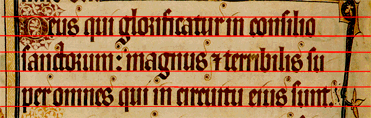 Deus qui glorificatur in consilio
sanctorum: magnus ⁊ terribilis su
per omnes qui in circuitu eius sunt.